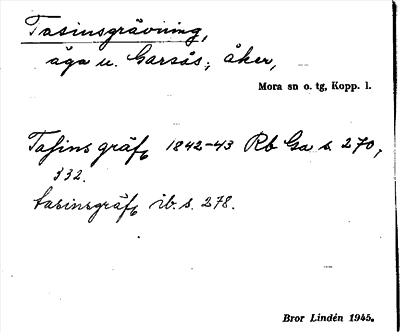 Tasinsgrävning,
äga u. Garsås; åker,
Mora sn o. tg, Kopp. l.
Tasins gräf 1842-43 Rb Ga s. 270,
332.
tasinsgräf ib. s. 278.
Bror Lindén 1945.